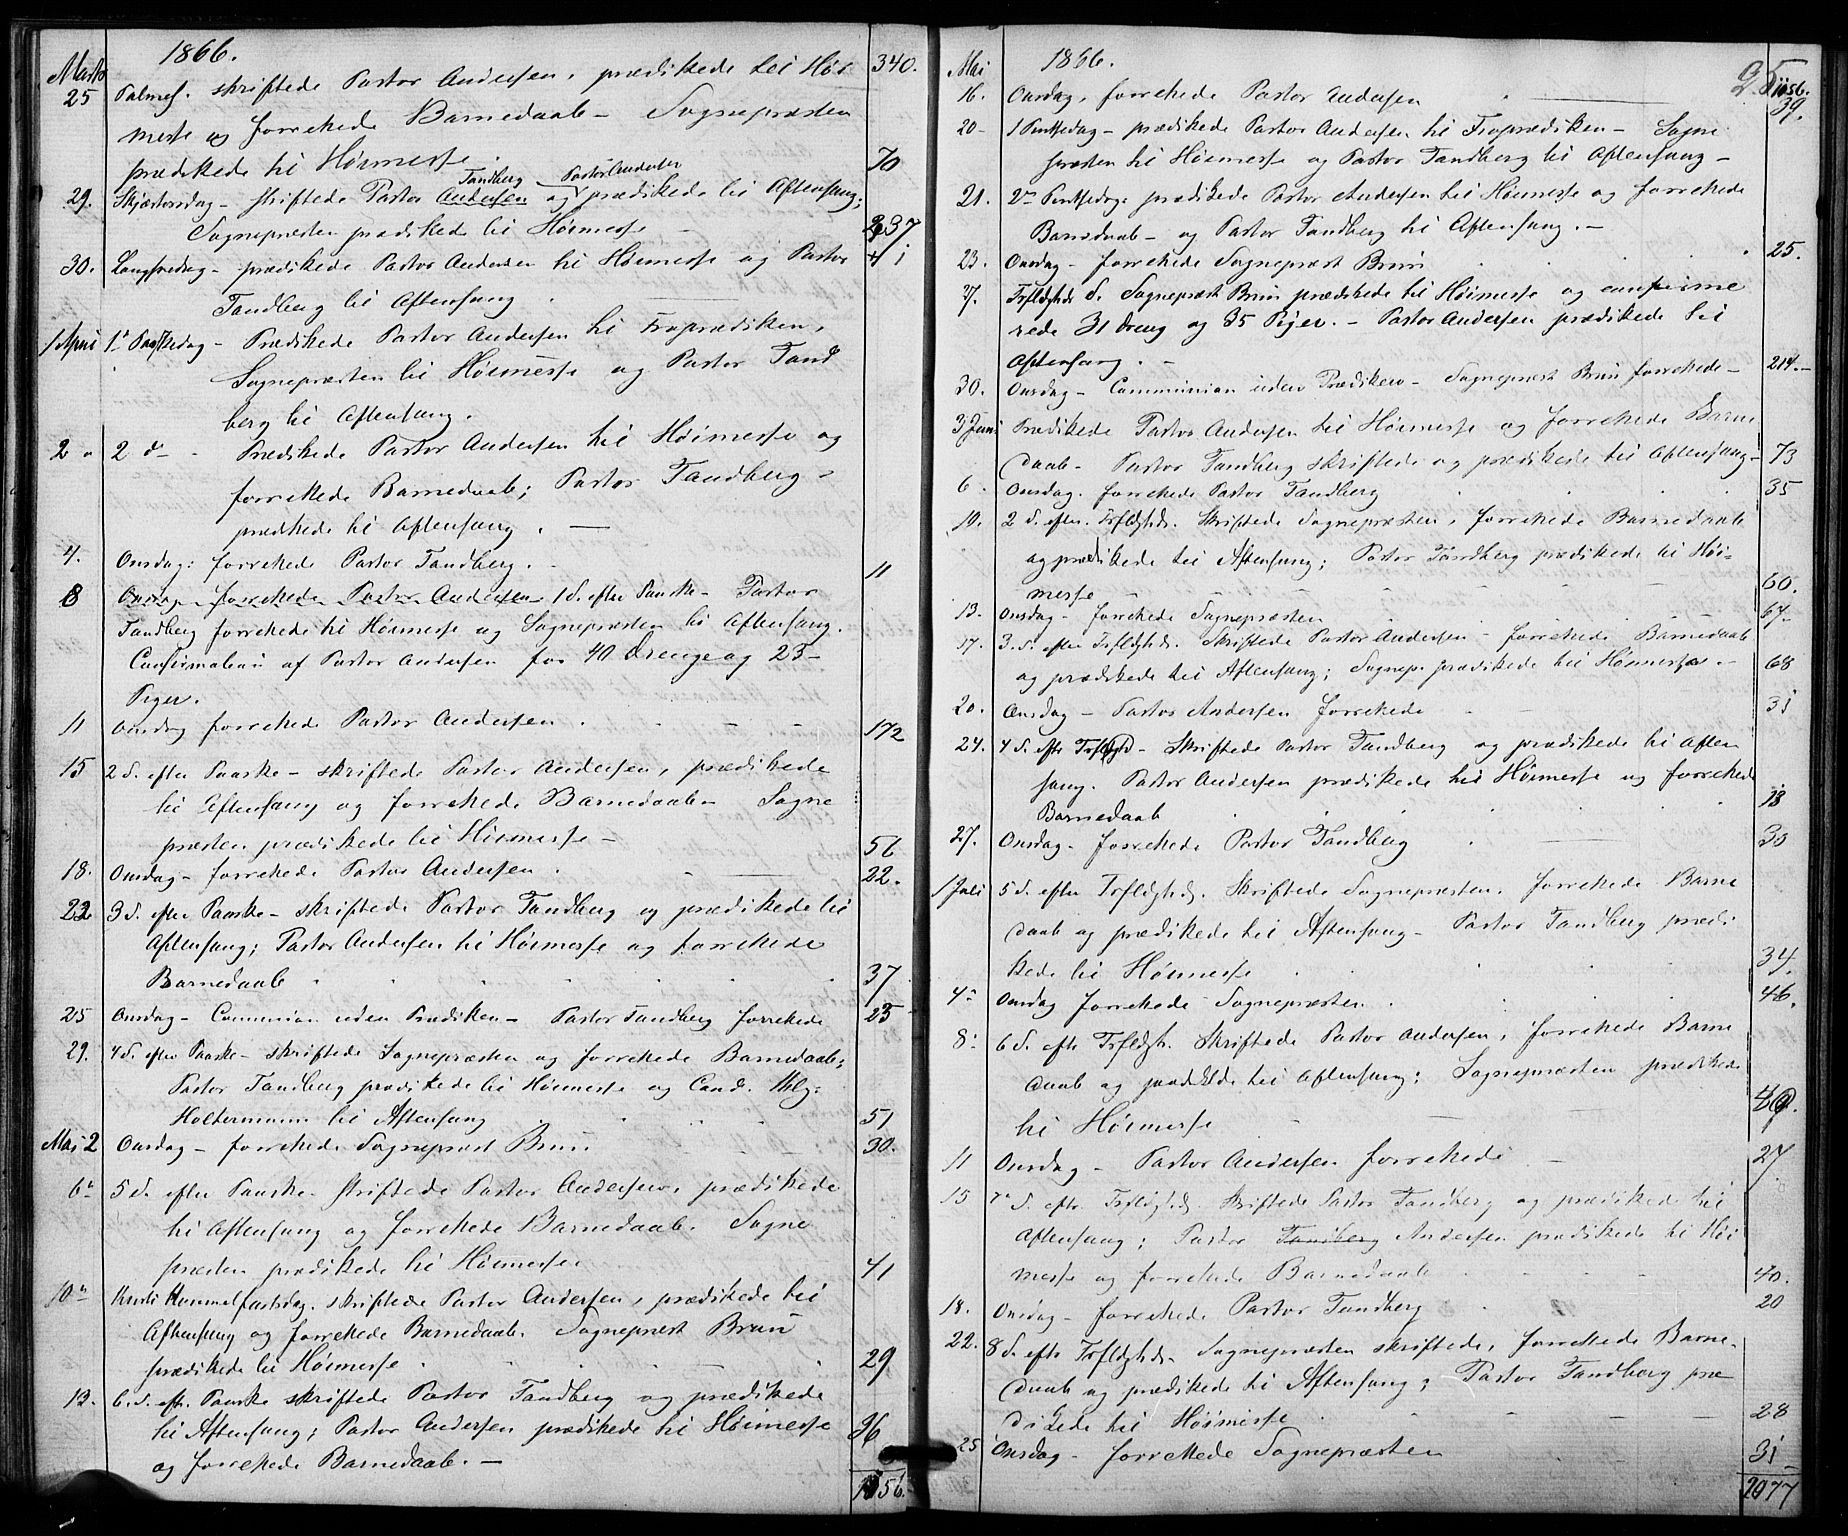 1866.
Marts 340.
25 Palmes. skriftede Pastor Andersen, prædikede til Høi
messe og forrettede Barnedaab – Sognepræsten
prædikede til Høimesse. 70
Tandberg Pastor Andersen
29. Skjærtorsdag – skriftede Pastor Andersen og prædikede til Aftensang;
Sognepræsten prædikede til Høimesse – 237
30. Langfredag – prædikede Pastor Andersen til Høimesse og Pastor
Tandberg til Aftensang.
1 April 1ste Paaskedag – Prædikede Pastor Andersen til Froprædiken,
Sognepræsten til Høimesse og Pastor Tand
berg til Aftensang.
2 " 2 d – Prædikede Pastor Andersen til Høimesse og
forrettede Barnedaab; Pastor Tandberg –
prædikede til Aftensang. —
4. Onsdag: forrettede Pastor Tandberg. 11
8 Onsdag – forrettede Pastor Andersen 1 S. efter Paaske – Pastor
Tandberg forrettede til Høimesse og Sognepræsten til Aftensang.
Confirmation af Pastor Andersen for 40 Drenge og 23 –
Piger.
11 Onsdag forrettede Pastor Andersen. 172
15 2 S. efter Paaske – skriftede Pastor Andersen, prædikede
til Aftensang og forrettede Barnedaab – Sogne
præsten prædikede til Høimesse – 56
18. Onsdag – forrettede Pastor Andersen. 22.
22 3 S. efter Paaske – skriftede Pastor Tandberg og prædikede til
Aftensang; Pastor Andersen til Høimesse og forrettede
Barnedaab 37
25 Onsdag – Communion uden Prædiken – Pastor Tandberg forrettede 23
29. 4 S. efter Paaske – skriftede Sognepræsten og forrettede Barnedaab;
Pastor Tandberg prædikede til Høimesse og Cand. thlg:
Holtermann til Aftensang 51
Mai 2 Onsdag – forrettede Sognepræst Brun. 30.
6te 5 S. efter Paaske – skriftede Pastor Andersen, prædikede
til Aftensang og forrettede Barnedaab. Sogne
præsten prædikede til Høimesse. 41
10de Christi Himmelfartsdag. skriftede Pastor Andersen, prædikede til
Aftensang og forrettede Barnedaab. Sognepræst Brun
prædikede til Høimesse. 29
13. 6. S. eft. Paaske skriftede Pastor Tandberg og prædikede
til Aftensang; Pastor Andersen prædikede til Høimesse 36
og forrettede Barnedaab. –
1156.
1866.
Mai 1156.
16. Onsdag, forrettede Pastor Andersen 39.
20 – 1 Pintsedag – prædikede Pastor Andersen til Froprædiken – Sogne
præsten til Høimesse og Pastor Tandberg til Aftensang –
21. 2den Pintsedag: prædikede Pastor Andersen til Høimesse og forrettede
Barnedaab – og Pastor Tandberg til Aftensang. –
23. Onsdag – forrettede Sognepræst Brun 25.
27. Trfldgheds S. Sognepræst Brun prædikede til Høimesse og confirme
rede 31 Dreng og 35 Piger. – Pastor Andersen prædikede til
Aftensang. – 214.
30. Onsdag – Communion uden Prædiken – Sognepræst Brun forrettede –
3 Juni Prædikede Pastor Andersen til Høimesse og forrettede Barne
daab – Pastor Tandberg skriftede og prædikede til Aftensang – 73
6. Onsdag. forrettede Pastor Tandberg 35
10. 2 S. efter. Trfldghds. Skriftede Sognepræsten, forrettede Barnedaab
og prædikede til Aftensang; Pastor Tandberg prædikede til Høi–
messe 60.
13. Onsdag – forrettede Sognepræsten 67.
17. 3. S. efter Trfldghds. Skriftede Pastor Andersen – forrettede Barnedaab
og prædikede til Aftensang; Sognepr. prædikede til Høimesse – 68
20. Onsdag – Pastor Andersen forrettede 31
24. 4 S. eftr Trfldghd – Skriftede Pastor Tandberg og prædikede til Aften
sang. Pastor Andersen prædikede til Høimesse og forrettede
Barnedaab 18
27. Onsdag – forrettede Pastor Tandberg 30
1 Juli 5 S. efter Trfldghds. Skriftede Sognepræsten, forrettede Barne
daab og prædikede til Aftensang – Pastor Tandberg prædi
kede til Høimesse 34.
4de Onsdag forrettede Sognepræsten 46.
8: 6 S. eftr Trfldgh. Skriftede Pastor Andersen, forrettede Barne
daab og prædikede til Aftensang; Sognepræsten prædikede
til Høimesse
11 Onsdag – Pastor Andersen forrettede 27
15 7de S. eftr. Trfldghds. Skriftede Pastor Tandberg og prædikede til
Aftensang; Pastor Tandberg Andersen prædikede til Høi
messe og forrettede Barnedaab 40.
18. Onsdag – forrettede Pastor Tandberg 20
22. 8 S. eftr Trfldghds. Sognepræsten skriftede, forrettede Barne–
daab og prædikede til Aftensang; Pastor Tandberg præ
dikede til Høimesse 28
25 Onsdag – forrettede Sognepræsten 31
2077